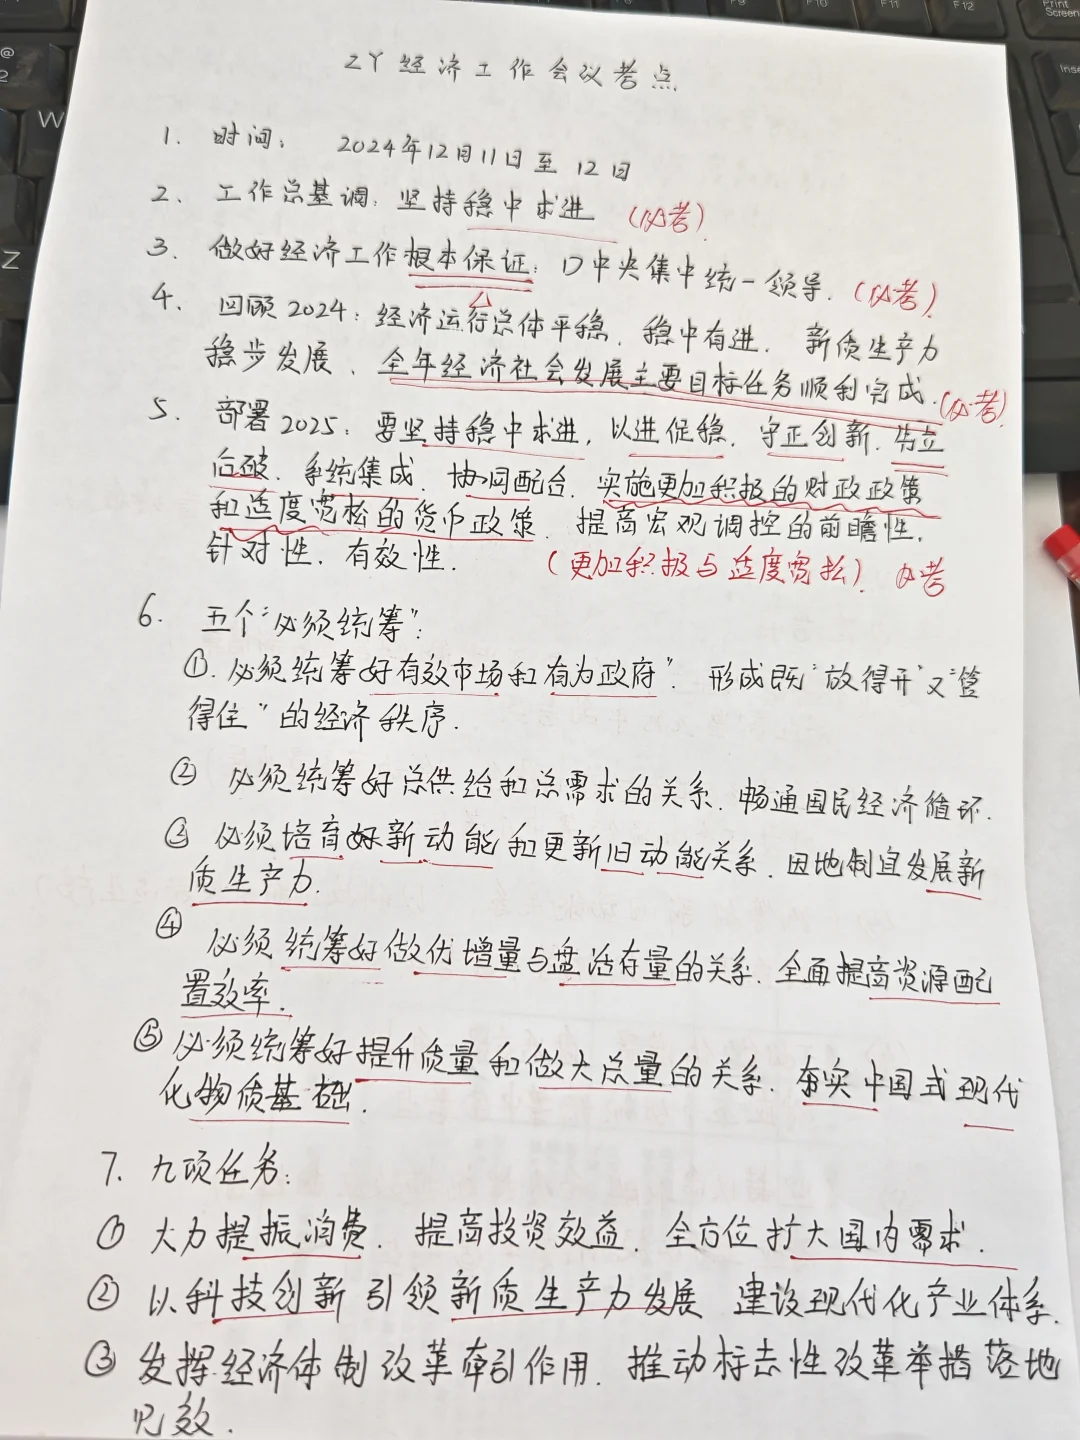 ZY经济工作会议考点
1. 时间： 2024年12月11日至12日
2. 工作总基调：坚持稳中求进 (必考)
3. 做好经济工作根本保证：D中央集中统一领导. (必考)
4. 回顾2024：经济运行总体平稳、稳中有进. 新质生产力
稳步发展、全年经济社会发展主要目标任务顺利完成. (必考)
5. 部署2025：要坚持稳中求进，以进促稳，守正创新、先立
后破、系统集成、协同配合、实施更加积极的财政政策
和适度宽松的货币政策、提高宏观调控的前瞻性，
针对性，有效性. (更加积极与适度宽松) 必考
6. 五个“必须统筹”：
①.必须统筹好有效市场和有为政府”. 形成既“放得开”又“管
得住”的经济秩序.
② 必须统筹好总供给和总需求的关系、畅通国民经济循环.
③ 必须培育好新动能和更新旧动能关系、因地制宜发展新
质生产力.
④ 必须统筹好做优增量与盘活存量的关系、全面提高资源配
置效率.
⑤ 必须统筹好提升质量和做大总量的关系、夯实中国式现代
化物质基础.
7. 九项任务：
① 大力提振消费、提高投资效益、全方位扩大国内需求.
② 以科技创新引领新质生产力发展 建设现代化产业体系.
③ 发挥经济体制改革牵引作用、推动标志性改革举措落地
见效.
W
Z
@
2
F9
F10
F11
F12
Print
Screen
Inse